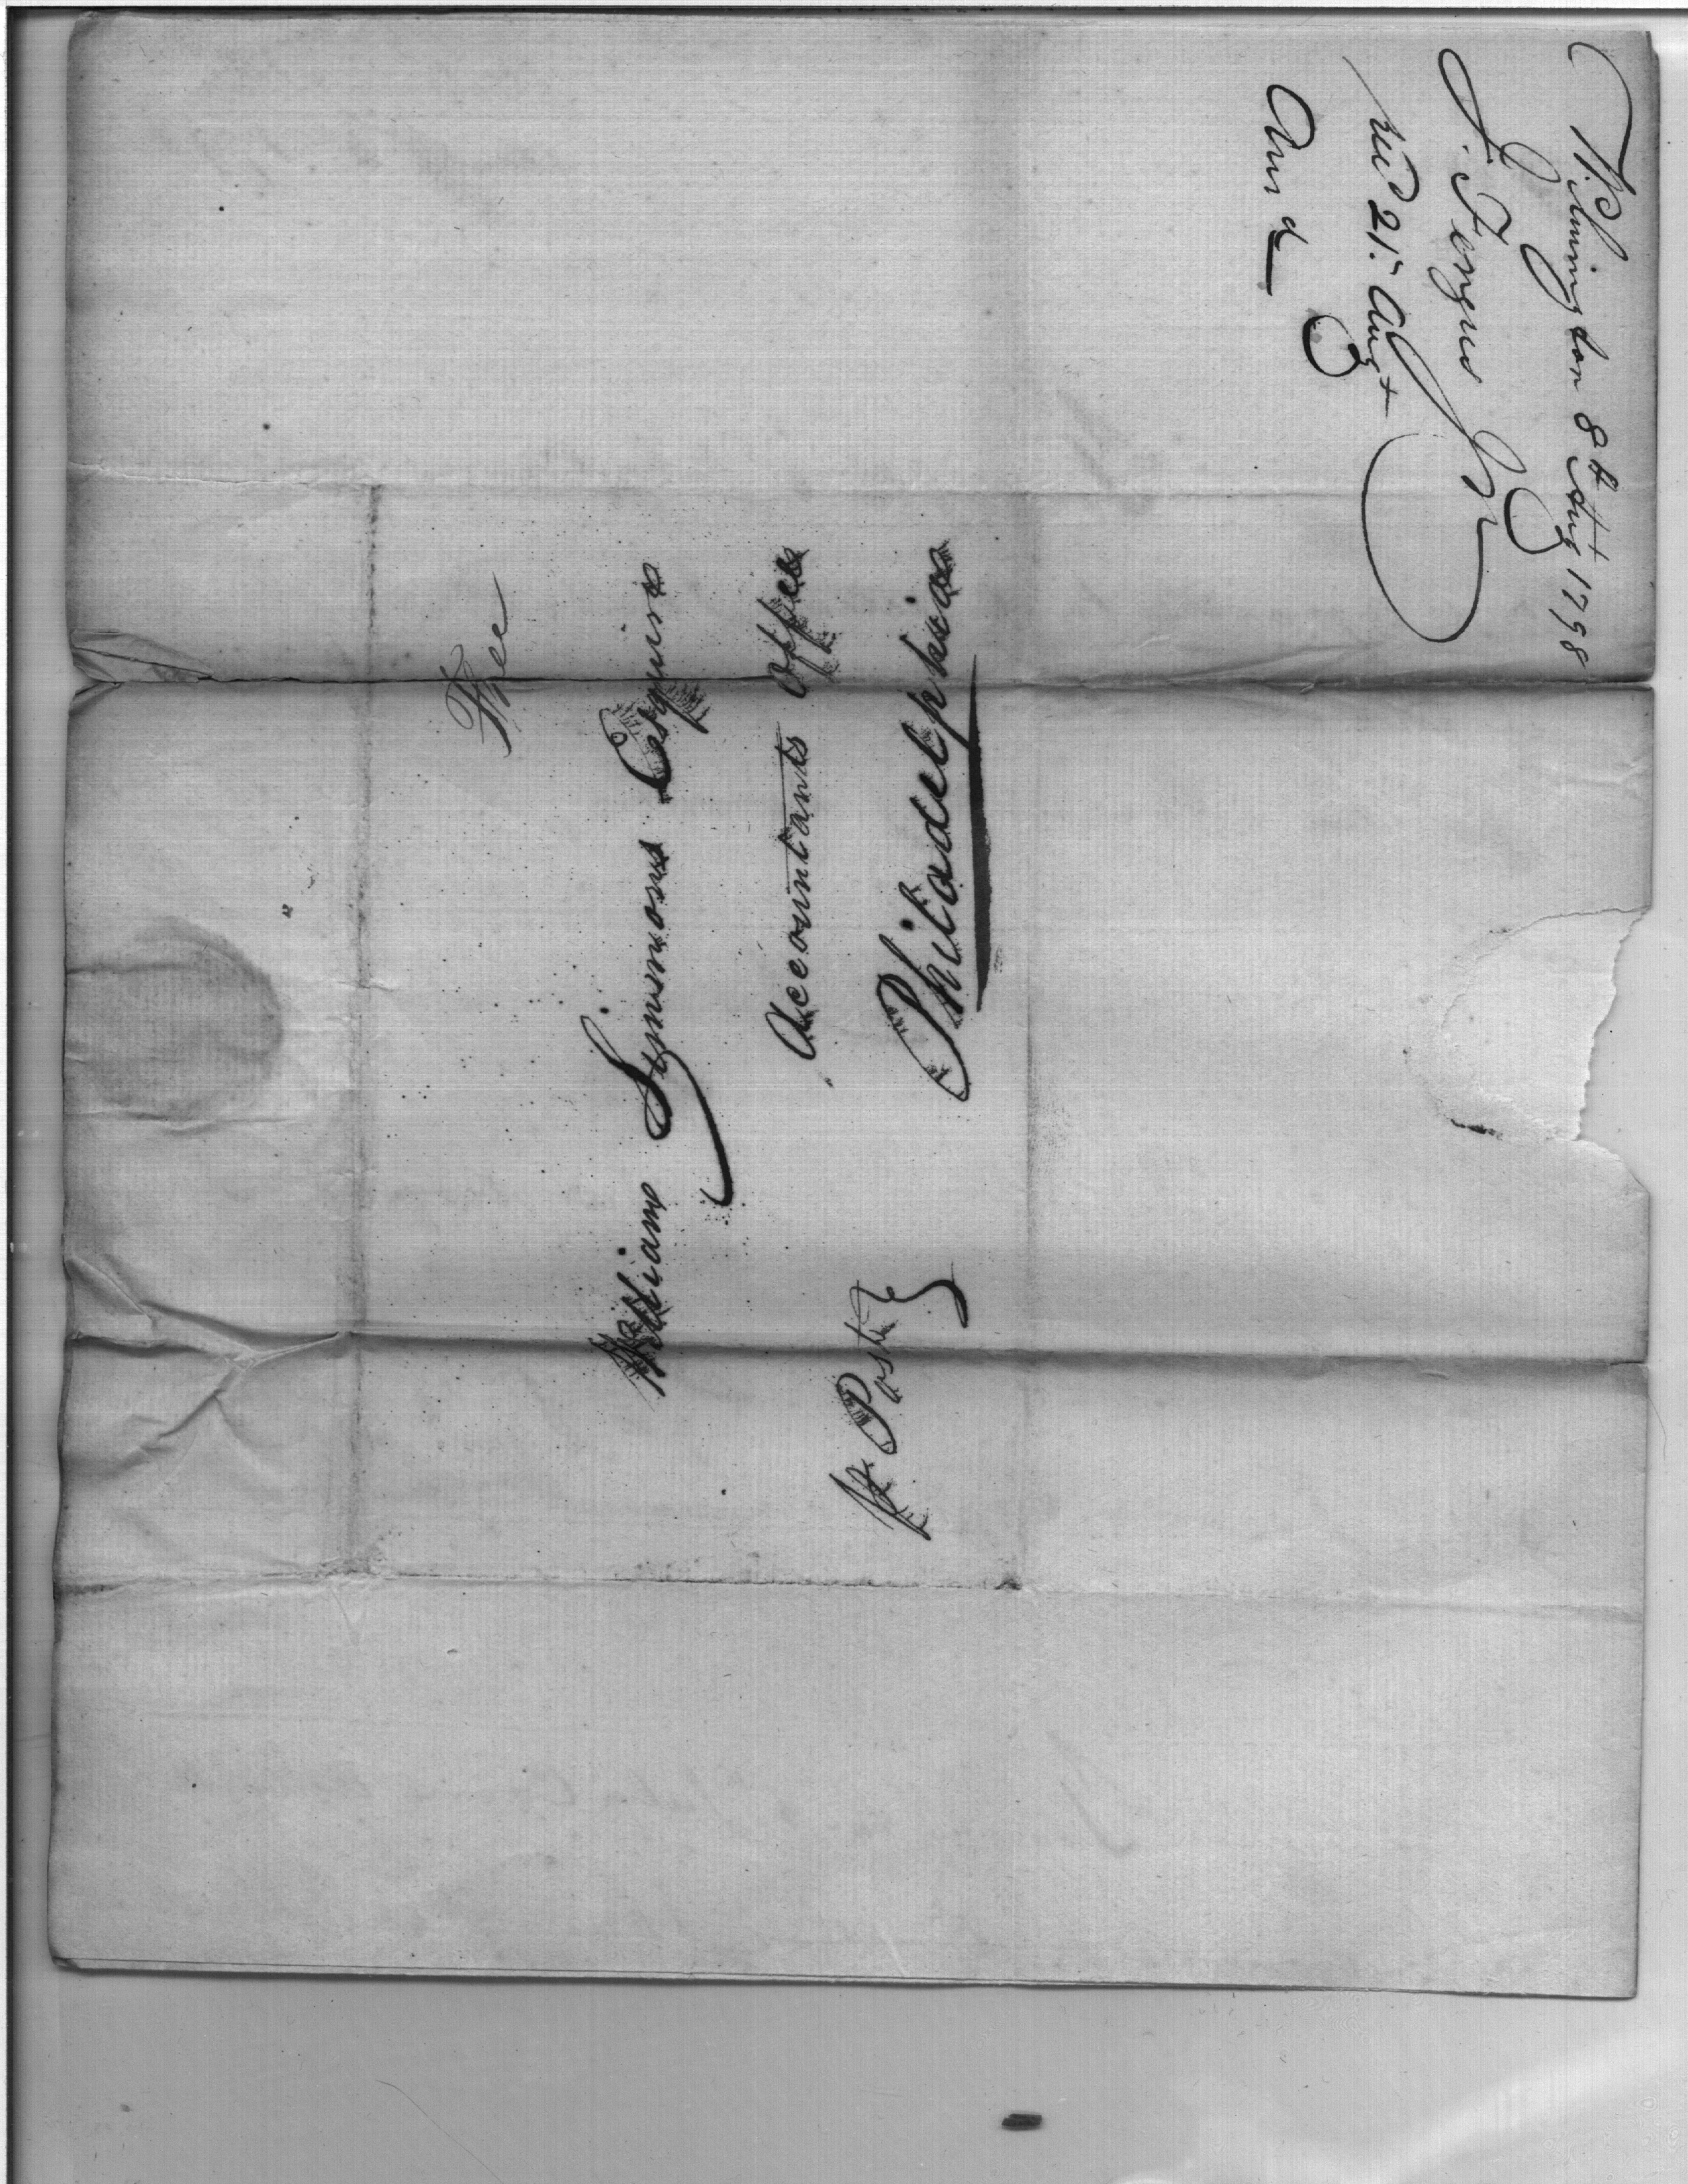 Wilmington 8th Aug 1798
J. Fergus
recd 21st Augt
Ansd
Free
William Simmons Esquire
Accountants Office
Philadelphia
Pr Post